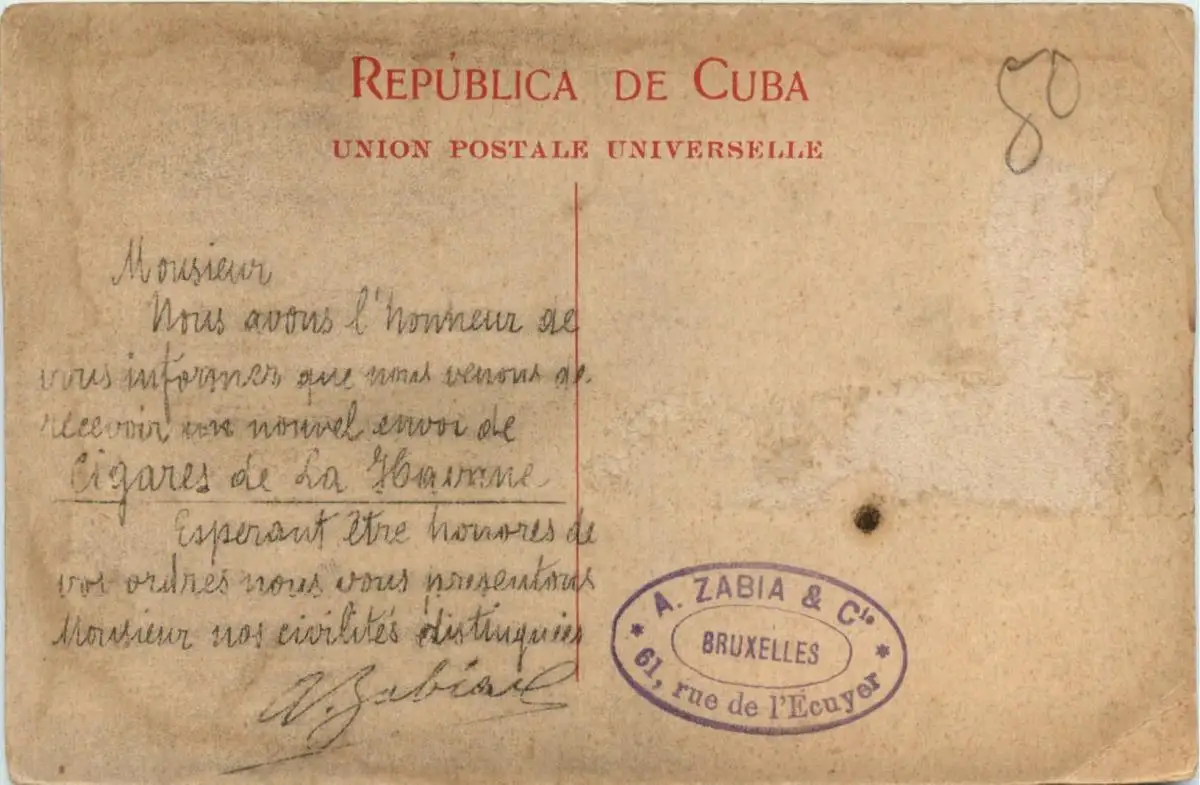 REPÚBLICA DE CUBA
UNION POSTALE UNIVERSELLE
80
Monsieur
Nous avons l'honneur de
vous informer que nous venons de
recevoir un nouvel envoi de
Cigares de La Havane
Esperant être honores de
vos ordres nous vous presentons
Monsieur nos civilités distinguées
Zabia
A. ZABIA & Cie
BRUXELLES
61, rue de l'Écuyer